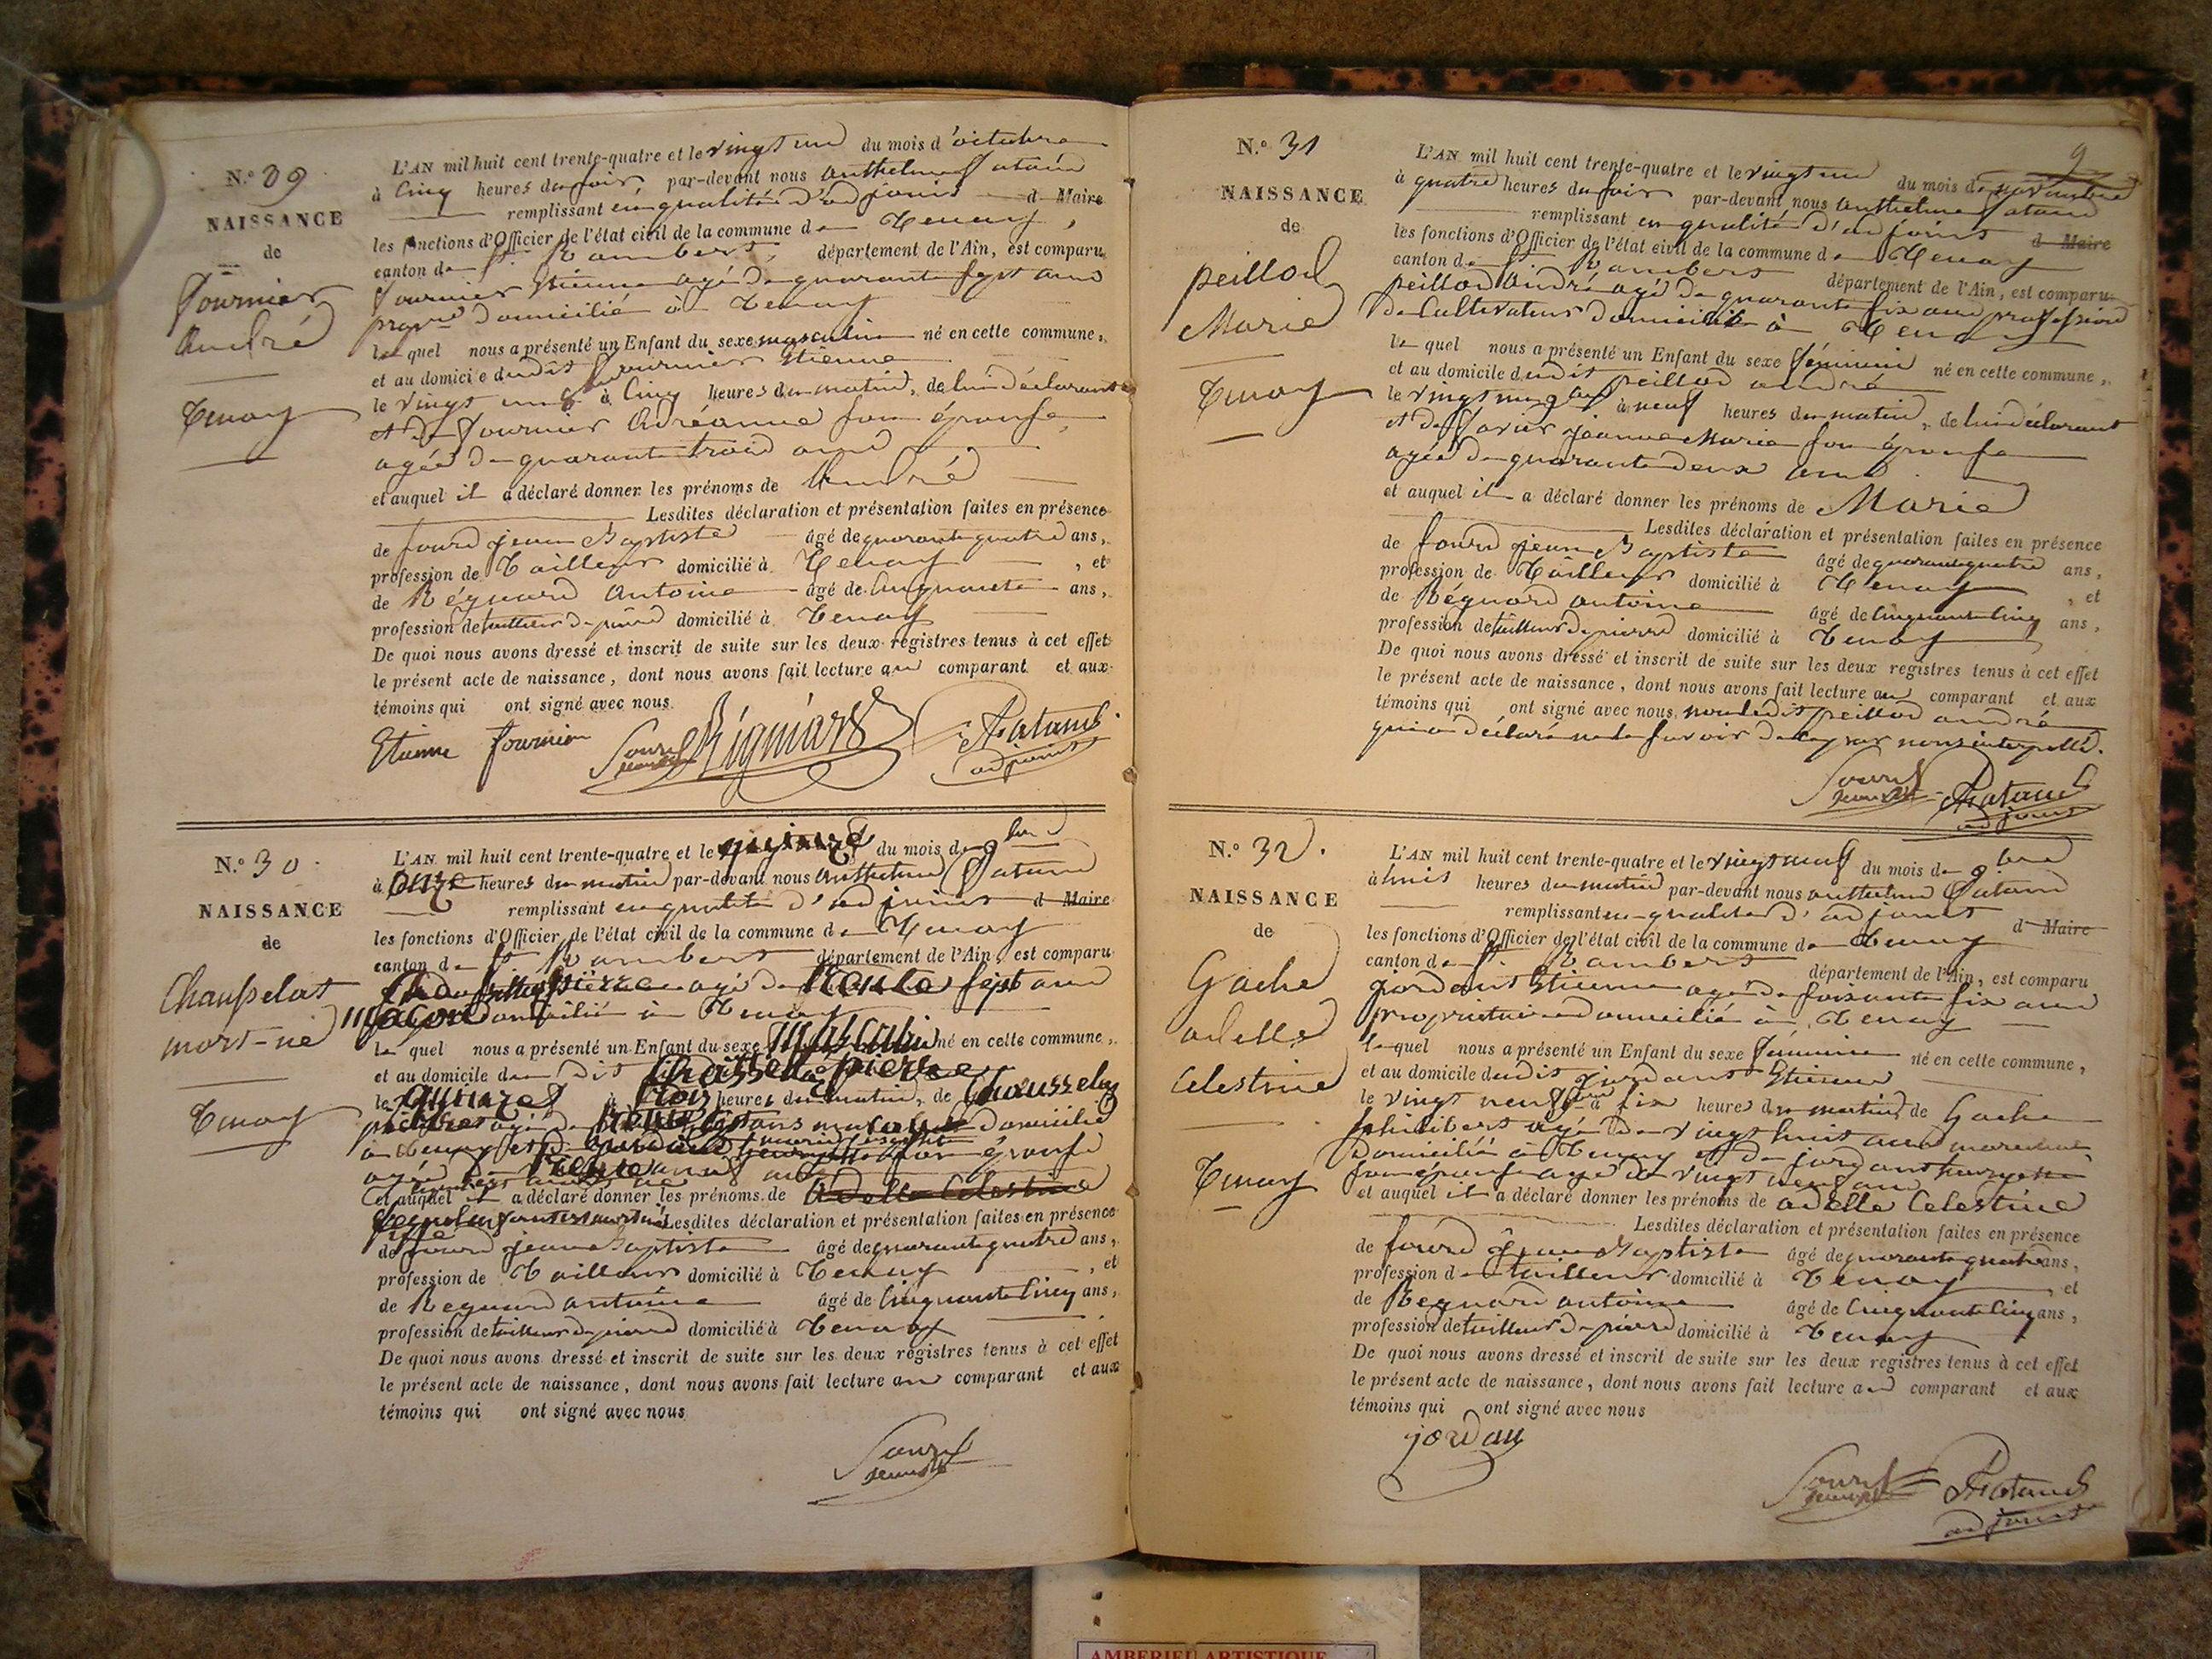 N.º 39
NAISSANCE
de
Fournier
André
Tenay
L'AN mil huit cent trente-quatre et le vingt un du mois d'octobre
à Cinq heures du soir, par-devant nous Anthelme Patand
remplissant en qualité d'adjoint d Maire
les fonctions d'Officier de l'état civil de la commune de Tenay,
canton de St Rambert, département de l'Ain, est comparu
Fournier Etienne agé de quarante sept ans
propre domicilié à Tenay
lequel nous a présenté un Enfant du sexe masculin né en cette commune,
et au domicile dudit Fournier Etienne
le vingt un à Cinq heures du matin, de lui déclarant
et de Fournier Adréanne son épouse,
agée de quarante trois ans
et auquel il a déclaré donner les prénoms de André
Lesdites déclaration et présentation faites en présence
de jean Baptiste âgé de quarante quatre ans,
profession de Tailleur domicilié à Tenay, et
de Régnard Antoine âgé de Cinquante ans,
profession de tailleur de pierre domicilié à Tenay
De quoi nous avons dressé et inscrit de suite sur les deux registres tenus à cet effet
le présent acte de naissance, dont nous avons fait lecture au comparant et aux
témoins qui ont signé avec nous
Etienne fournier Régniard Patand
adjoint
N.º 30
NAISSANCE
de
Chausselat
mort-né
Tenay
L'AN mil huit cent trente-quatre et le quinze du mois de 9bre
à onze heures du matin par-devant nous Anthelme Patand
remplissant en qualité d'adjoint d Maire
les fonctions d'Officier de l'état civil de la commune de Tenay
canton de St Rambert département de l'Ain, est comparu
pierre agé de trente sept ans
maçon domicilié à Tenay
lequel nous a présenté un Enfant du sexe Masculin né en cette commune,
et au domicile du dit pierre
le quinze à trois heures du matin, de Chausselas
pierre agé de domicilié
à Tenay et de son épouse
agée de
et auquel il a déclaré donner les prénoms de Adelle Celestine
Lesdites déclaration et présentation faites en présence
de jean Baptiste âgé de quarante quatre ans,
profession de Tailleur domicilié à Tenay, et
de Regnard antoine âgé de Cinquante Cinq ans,
profession de tailleur de pierre domicilié à Tenay
De quoi nous avons dressé et inscrit de suite sur les deux registres tenus à cet effet
le présent acte de naissance, dont nous avons fait lecture au comparant et aux
témoins qui ont signé avec nous
9
N.º 31
NAISSANCE
de
peillod
Marie
Tenay
L'AN mil huit cent trente-quatre et le vingt un du mois de novembre
à quatre heures du soir par-devant nous Anthelme Patand
remplissant en qualité d'adjoint d Maire
les fonctions d'Officier de l'état civil de la commune de Tenay
canton de St Rambert département de l'Ain, est comparu
peillod André agé de quarante six ans profession
de Cultivateur domicilié à Tenay
lequel nous a présenté un Enfant du sexe féminin né en cette commune,
et au domicile dudit peillod andré
le vingt un 9bre à neuf heures du matin, de lui déclarant
et de jeanne Marie son épouse
agée de quarante deux ans
et auquel il a déclaré donner les prénoms de Marie
Lesdites déclaration et présentation faites en présence
de jean Baptiste âgé de quarante quatre ans,
profession de Tailleur domicilié à Tenay, et
de Regnard antoine âgé de Cinquante Cinq ans,
profession de tailleur de pierre domicilié à Tenay
De quoi nous avons dressé et inscrit de suite sur les deux registres tenus à cet effet
le présent acte de naissance, dont nous avons fait lecture au comparant et aux
témoins qui ont signé avec nous, non ledit peillod andré
qui a déclaré ne le savoir de ce par nous interpellé.
Patand
adjoint
N.º 32.
NAISSANCE
de
Gache
adelle
Celestine
Tenay
L'AN mil huit cent trente-quatre et le vingt neuf du mois de 9bre
à huit heures du matin par-devant nous anthelme Patand
remplissant en qualité d'adjoint d Maire
les fonctions d'Officier de l'état civil de la commune de Tenay
canton de St Rambert département de l'Ain, est comparu
jordant Etienne agé de soixante six ans
propriétaire domicilié à Tenay
lequel nous a présenté un Enfant du sexe féminin né en cette commune,
et au domicile dudit jordant Etienne
le vingt neuf 9bre à six heures du matin de Gache
philibert agé de vingt huit ans
domicilié à Tenay et de jordant
son épouse agée de vingt neuf ans
et auquel il a déclaré donner les prénoms de adelle Celestine
Lesdites déclaration et présentation faites en présence
de jean Baptiste âgé de quarante quatre ans,
profession de tailleur domicilié à Tenay, et
de Regnard antoine âgé de Cinquante Cinq ans,
profession de tailleur de pierre domicilié à Tenay
De quoi nous avons dressé et inscrit de suite sur les deux registres tenus à cet effet
le présent acte de naissance, dont nous avons fait lecture au comparant et aux
témoins qui ont signé avec nous
jordan
Patand
adjoint
AMBERIEU ARTISTIQUE